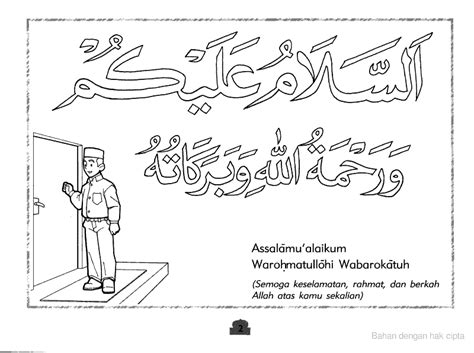 اَلسَّلَامُ عَلَيْكُمْ
وَرَحْمَةُ اللهِ وَبَرَكَاتُهُ
Assalāmu'alaikum
Waroḥmatullōhi Wabarokātuh
(Semoga keselamatan, rahmat, dan berkah
Allah atas kamu sekalian)
2
Bahan dengan hak cipta